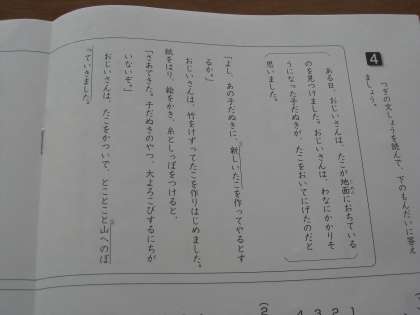 4
つぎの文しょうを読んで、下のもんだいに答え
ましょう。
ある日、おじいさんは、たこが地面におちている
のを見つけました。おじいさんは、わなにかかりそ
うになった子だぬきが、たこをおいてにげたのだと
思いました。
「よし、あの子だぬきに、新しいたこを作ってやるとす
るか。」
おじいさんは、竹をけずってたこを作りはじめました。
紙をはり、絵をかき、糸としっぽをつけると、
「さあできた。子だぬきのやつ、大よろこびするにちが
いないぞ。」
おじいさんは、たこをかついで、とことこと山へのぼ
っていきました。
1
2
3
4
(2